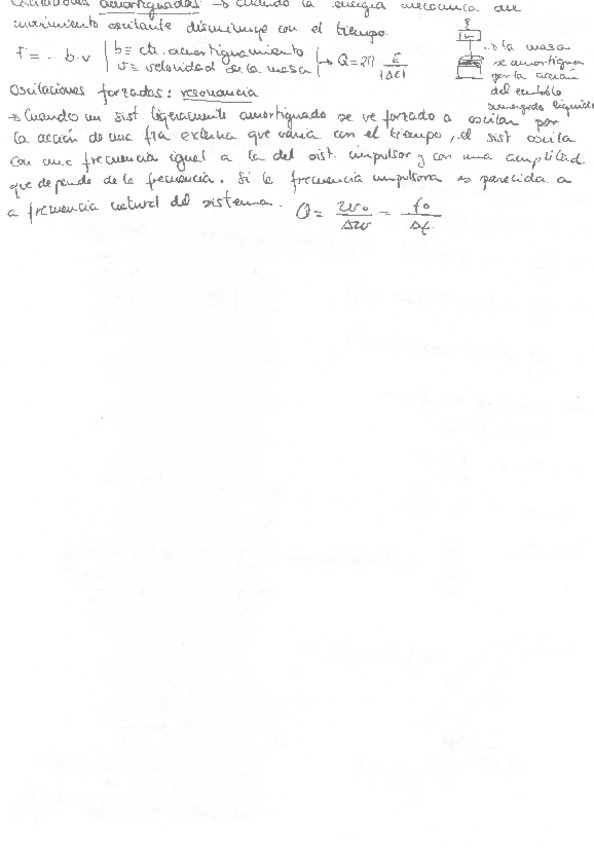 Oscilaciones amortiguadas → Cuando la energía mecánica del
movimiento oscilante disminuye con el tiempo.
F = - b·v | b ≡ ct. amortiguamiento
v ≡ velocidad de la masa
↳ Q = 2π E / |ΔE|
→ la masa
se amortigua
por la acción
del émbolo
sumergido líquido
Oscilaciones forzadas: resonancia
→ Cuando un sist. ligeramente amortiguado se ve forzado a oscilar por
la acción de una fza externa que varia con el tiempo, el sist oscila
con una frecuencia igual a la del sist. impulsor y con una amplitud
que depende de la frecuencia. Si la frecuencia impulsora es parecida a
a frecuencia natural del sistema. Q = ω₀/Δω = f₀/Δf.